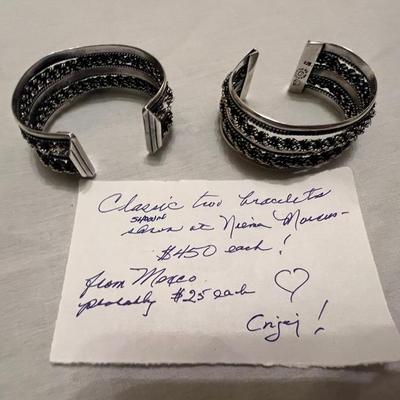 Classic two bracelets
SHOWN
shown at Neima Marcus-
$450 each!
from Mexco
probably $25 each
Enjoy!